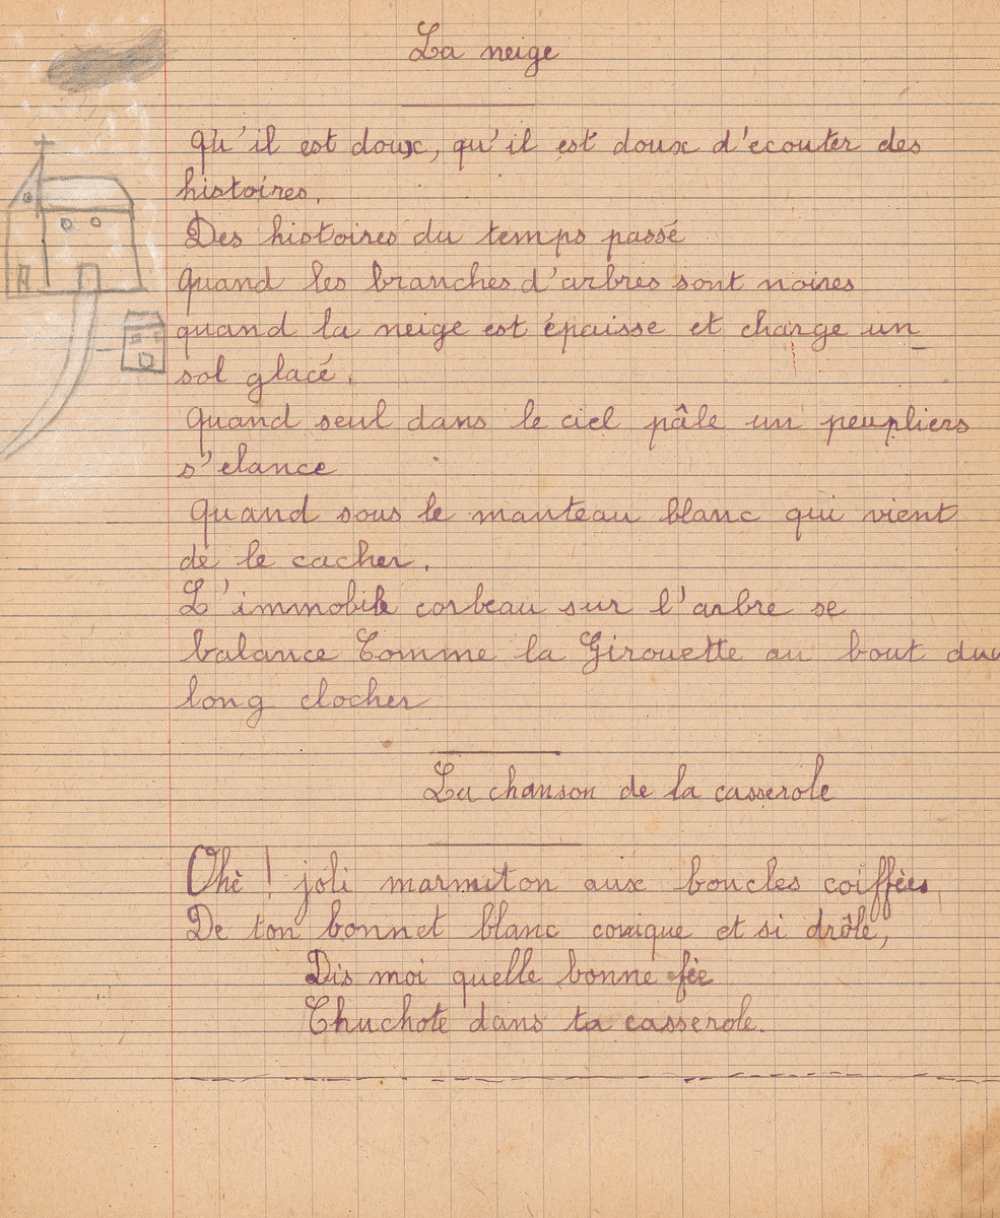 La neige
Qu'il est doux, qu'il est doux d'ecouter des
histoires.
Des histoires du temps passé
Quand les branches d'arbres sont noires
quand la neige est épaisse et charge un
sol glacé.
Quand seul dans le ciel pâle un peupliers
s'elance
Quand sous le manteau blanc qui vient
de le cacher.
L'immobile corbeau sur l'arbre se
balance Comme la Girouette au bout du
long clocher
La chanson de la casserole
Ohè ! joli marmiton aux boucles coiffèes
De ton bonnet blanc conique et si drôle,
Dis moi quelle bonne fèe
Chuchote dans ta casserole.